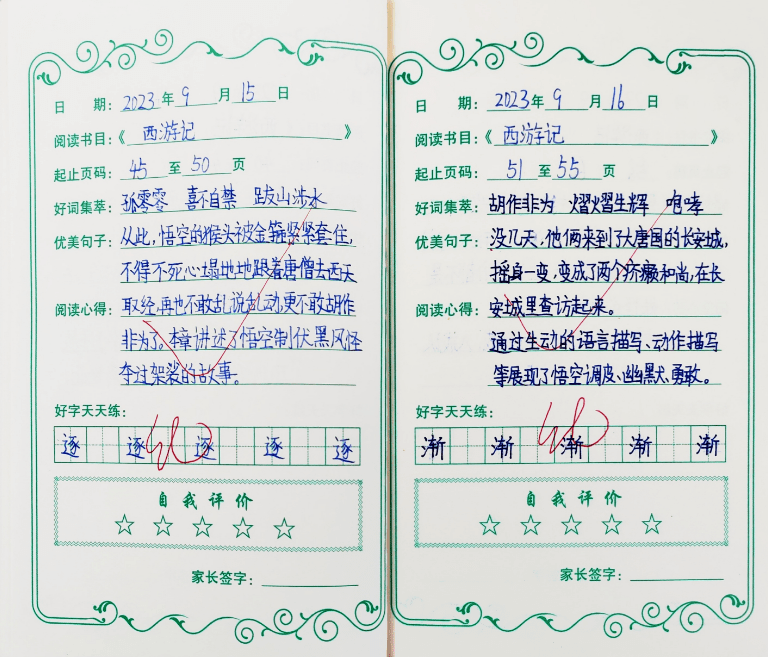 日 期：2023年9月15日
阅读书目：《西游记》
起止页码：45至50页
好词集萃：孤零零 喜不自禁 跋山涉水
优美句子：从此，悟空的猴头被金箍紧紧套住，
不得不死心塌地地跟着唐僧去西天
阅读心得：取经，再也不敢乱说乱动，更不敢胡作
非为了。本章讲述了悟空制伏黑风怪
夺过架裟的故事。
好字天天练：
逐 逐 逐 逐 逐
自我评价
☆ ☆ ☆ ☆ ☆
家长签字：
日 期：2023年9月16日
阅读书目：《西游记》
起止页码：51至55页
好词集萃：胡作非为 熠熠生辉 咆哮
优美句子：没几天，他俩来到了大唐国的长安城，
摇身一变，变成了两个疥癞和尚，在长
阅读心得：安城里查访起来。
通过生动的语言描写、动作描写
等展现了悟空调皮、幽默、勇敢。
好字天天练：
渐 渐 渐 渐 渐
自我评价
☆ ☆ ☆ ☆ ☆
家长签字：